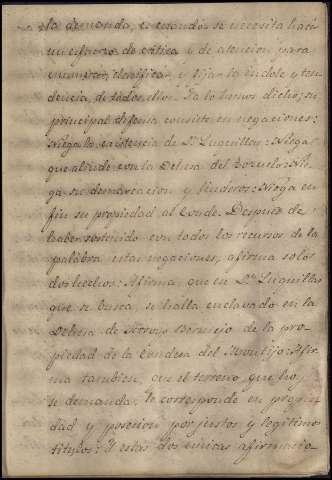 la demanda, es cuando se necesita hacer
un esfuerzo de crítica y de atencion para
enumerar, clasificar, y fijar la índole y ten
dencia, de todos ellos. Ya lo hemos dicho; su
principal defensa consiste en negaciones:
Niega la existencia de Dn Luguillos: Niega
que alinde con la Dehesa del Torzuelo: Nie
ga su demarcacion y linderos: Niega en
fin su propiedad al Conde. Despues de
haber sostenido con todos los recursos de la
palabra estas negaciones, afirma solos
dos hechos: Afirma, que en Dn Luguillos
que se busca, se halla enclavado en la
Dehesa de Arroyo Bermejo de la pro
piedad de la Condesa del Montijo: Afir
ma tambien, que el terreno que hoy
se demanda, le corresponde en propie
dad y posesion por justos y legitimos
titulos: Y estas dos unicas afirmacio